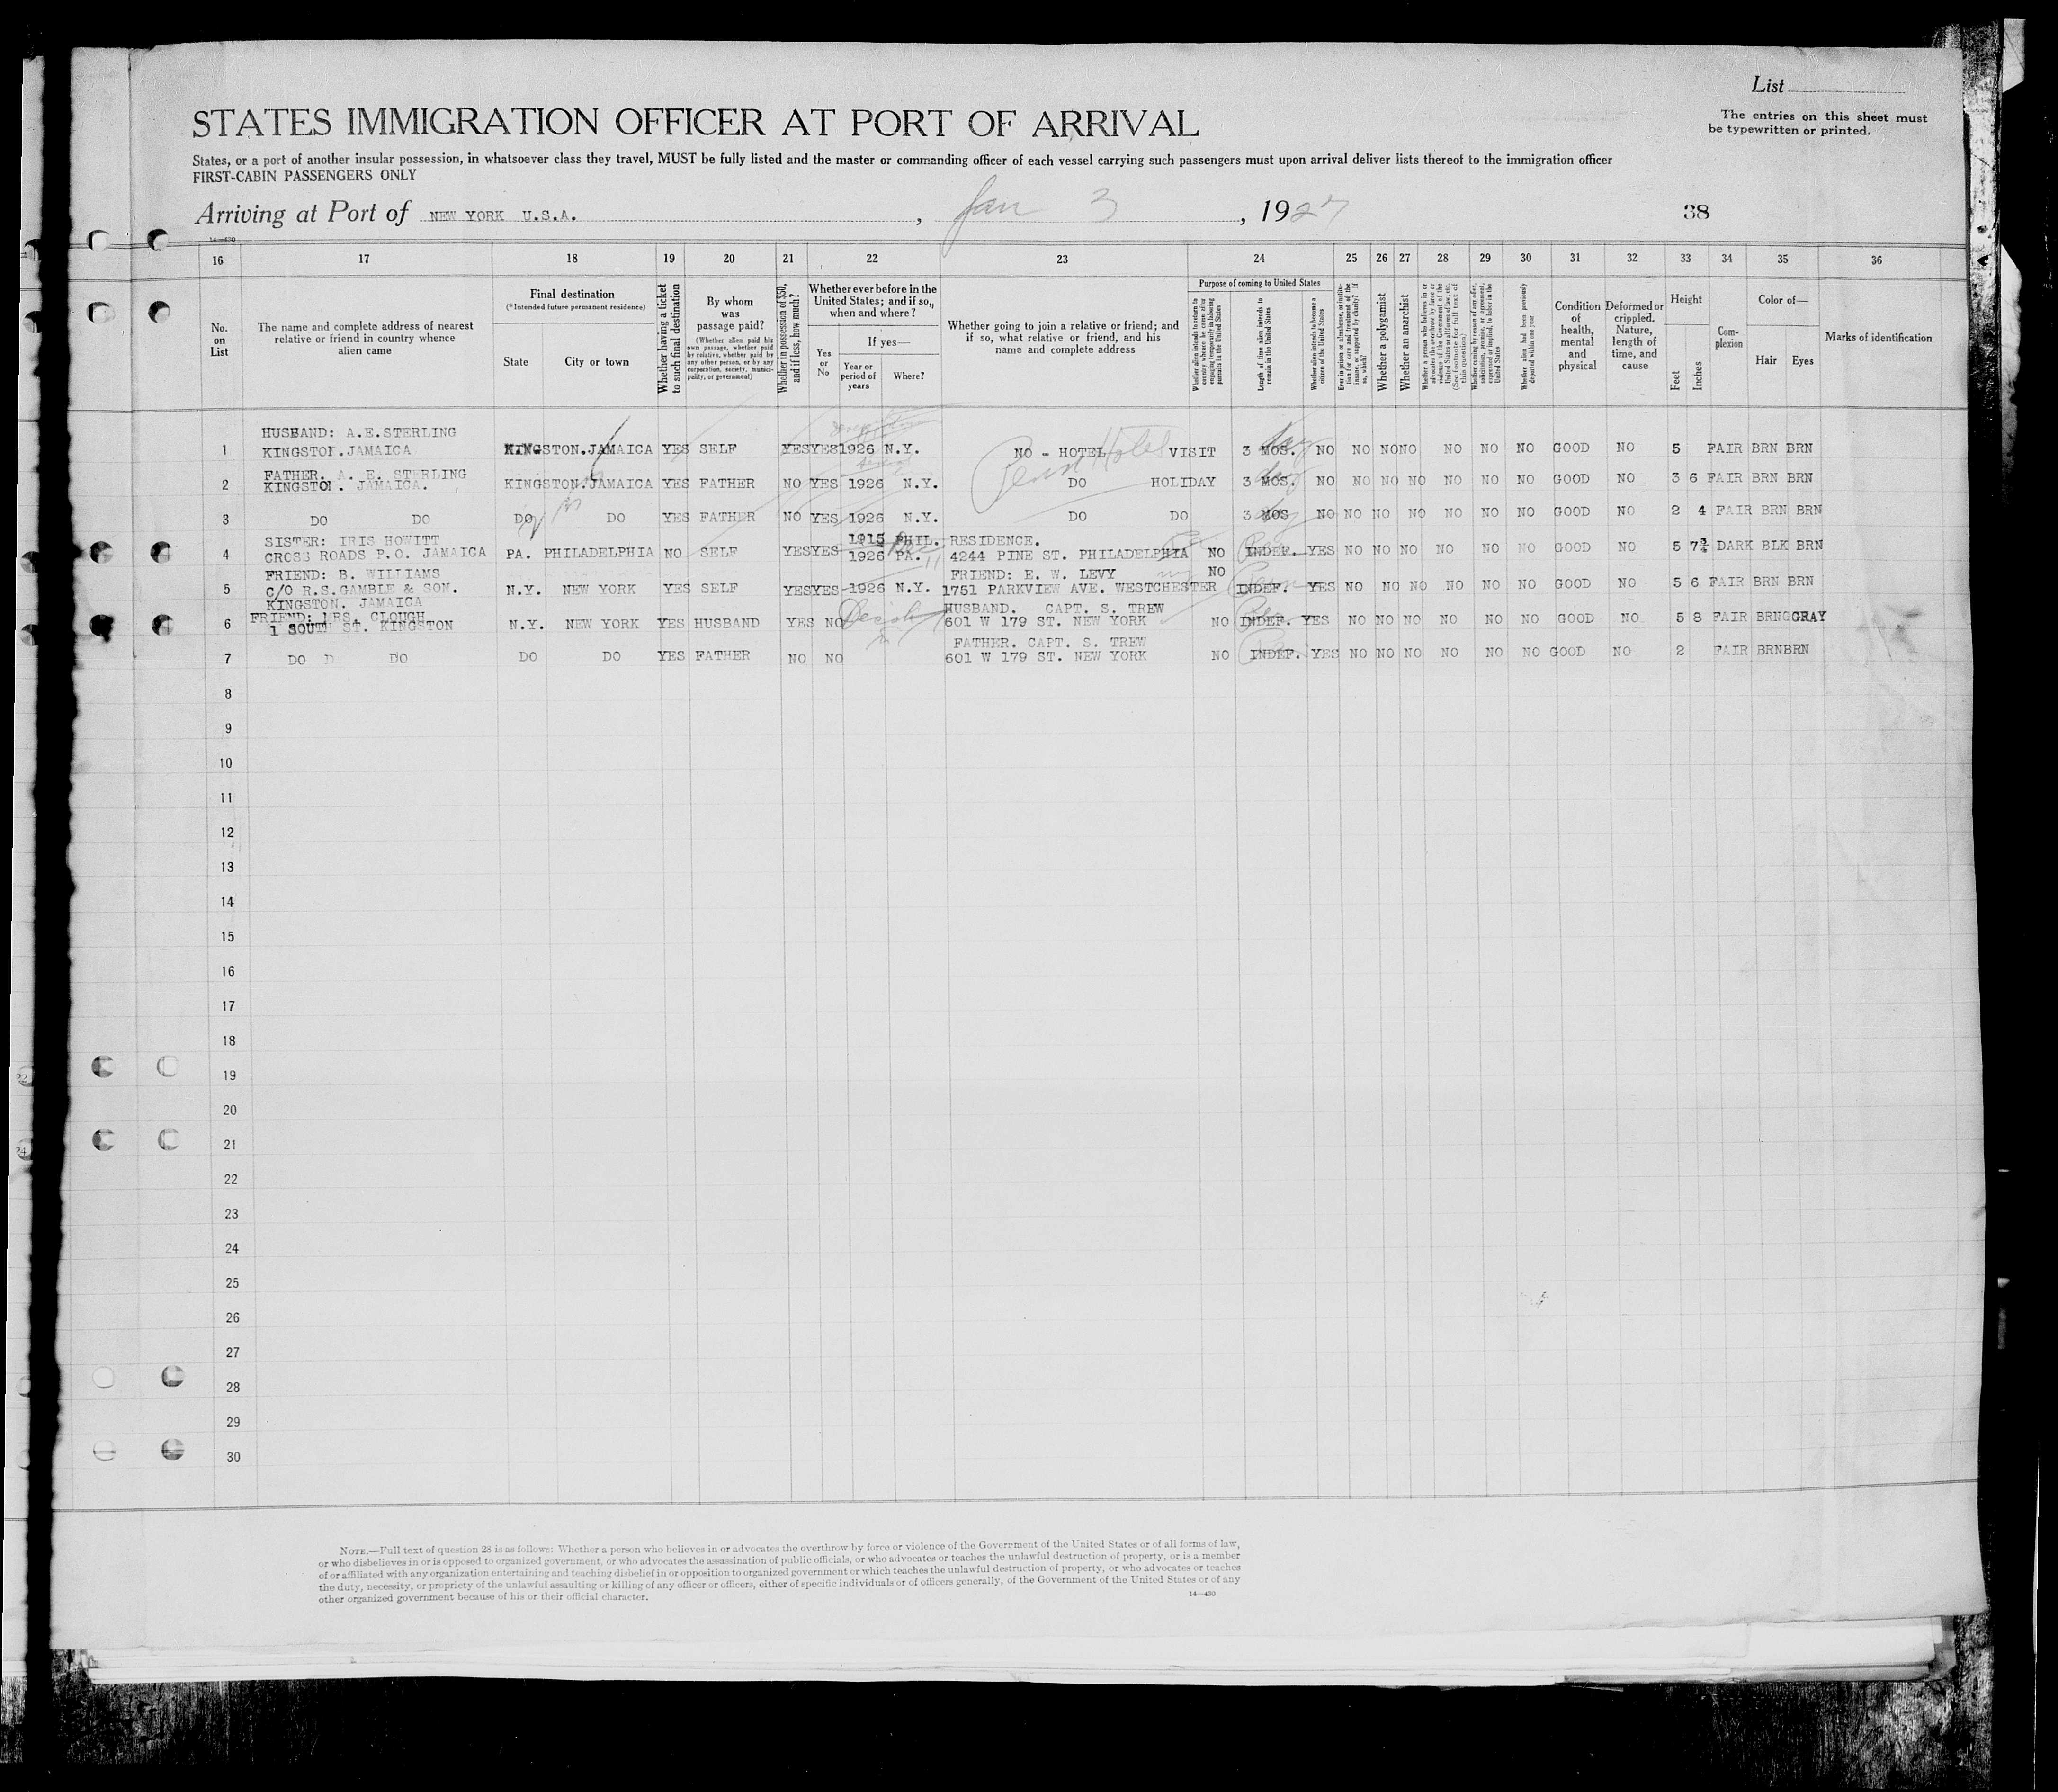 List
The entries on this sheet must
be typewritten or printed.
STATES IMMIGRATION OFFICER AT PORT OF ARRIVAL
States, or a port of another insular possession, in whatsoever class they travel, MUST be fully listed and the master or commanding officer of each vessel carrying such passengers must upon arrival deliver lists thereof to the immigration officer
FIRST-CABIN PASSENGERS ONLY
Arriving at Port of NEW YORK U.S.A. , Jan 3 , 1927 38
14—430
16 17 18 19 20 21 22 23 24 25 26 27 28 29 30 31 32 33 34 35 36
No. on List
The name and complete address of nearest relative or friend in country whence alien came
Final destination
(*Intended future permanent residence)
State City or town
Whether having a ticket to such final destination
By whom was passage paid?
(Whether alien paid his own passage, whether paid by relative, whether paid by any other person, or by any corporation, society, municipality, or government)
Whether in possession of $50, and if less, how much?
Whether ever before in the United States; and if so, when and where?
Yes or No
If yes—
Year or period of years
Where?
Whether going to join a relative or friend; and if so, what relative or friend, and his name and complete address
Purpose of coming to United States
Length of time alien intends to remain in the United States
Whether alien intends to become a citizen of the United States
Whether a polygamist
Whether an anarchist
Whether alien had been previously deported within one year
Condition of health, mental and physical
Deformed or crippled. Nature, length of time, and cause
Height
Feet Inches
Com-plexion
Color of—
Hair Eyes
Marks of identification
HUSBAND: A.E.STERLING
1 KINGSTON.JAMAICA KINGSTON.JAMAICA YES SELF YES YES 1926 N.Y. NO - HOTEL VISIT 3 MOS. NO NO NO NO NO NO NO GOOD NO 5 FAIR BRN BRN
FATHER. A. E. STERLING
2 KINGSTON. JAMAICA. KINGSTON.JAMAICA YES FATHER NO YES 1926 N.Y. DO HOLIDAY 3 MOS. NO NO NO NO NO NO NO GOOD NO 3 6 FAIR BRN BRN
3 DO DO DO DO YES FATHER NO YES 1926 N.Y. DO DO 3 MOS NO NO NO NO NO NO NO GOOD NO 2 4 FAIR BRN BRN
SISTER: IRIS HOWITT 1915 PHIL. RESIDENCE.
4 CROSS ROADS P.O. JAMAICA PA. PHILADELPHIA NO SELF YES YES 1926 PA. 4244 PINE ST. PHILADELPHIA NO INDEF. YES NO NO NO NO NO NO GOOD NO 5 7¾ DARK BLK BRN
FRIEND: B. WILLIAMS FRIEND: E. W. LEVY NO
5 C/O R.S.GAMBLE & SON. N.Y. NEW YORK YES SELF YES YES 1926 N.Y. 1751 PARKVIEW AVE. WESTCHESTER INDEF. YES NO NO NO NO NO NO GOOD NO 5 6 FAIR BRN BRN
KINGSTON. JAMAICA
FRIEND: MRS. CLOUGH HUSBAND. CAPT. S. TREW
6 1 SOUTH ST. KINGSTON N.Y. NEW YORK YES HUSBAND YES NO 601 W 179 ST. NEW YORK NO INDEF. YES NO NO NO NO NO NO GOOD NO 5 8 FAIR BRN GRAY
FATHER. CAPT. S. TREW
7 DO DO DO DO YES FATHER NO NO 601 W 179 ST. NEW YORK NO INDEF. YES NO NO NO NO NO NO GOOD NO 2 FAIR BRN BRN
8
9
10
11
12
13
14
15
16
17
18
19
20
21
22
23
24
25
26
27
28
29
30
NOTE.—Full text of question 28 is as follows: Whether a person who believes in or advocates the overthrow by force or violence of the Government of the United States or of all forms of law,
or who disbelieves in or is opposed to organized government, or who advocates the assassination of public officials, or who advocates or teaches the unlawful destruction of property, or is a member
of or affiliated with any organization entertaining and teaching disbelief in or opposition to organized government or which teaches the unlawful destruction of property, or who advocates or teaches
the duty, necessity, or propriety of the unlawful assaulting or killing of any officer or officers, either of specific individuals or of officers generally, of the Government of the United States or of any
other organized government because of his or their official character.
14—430